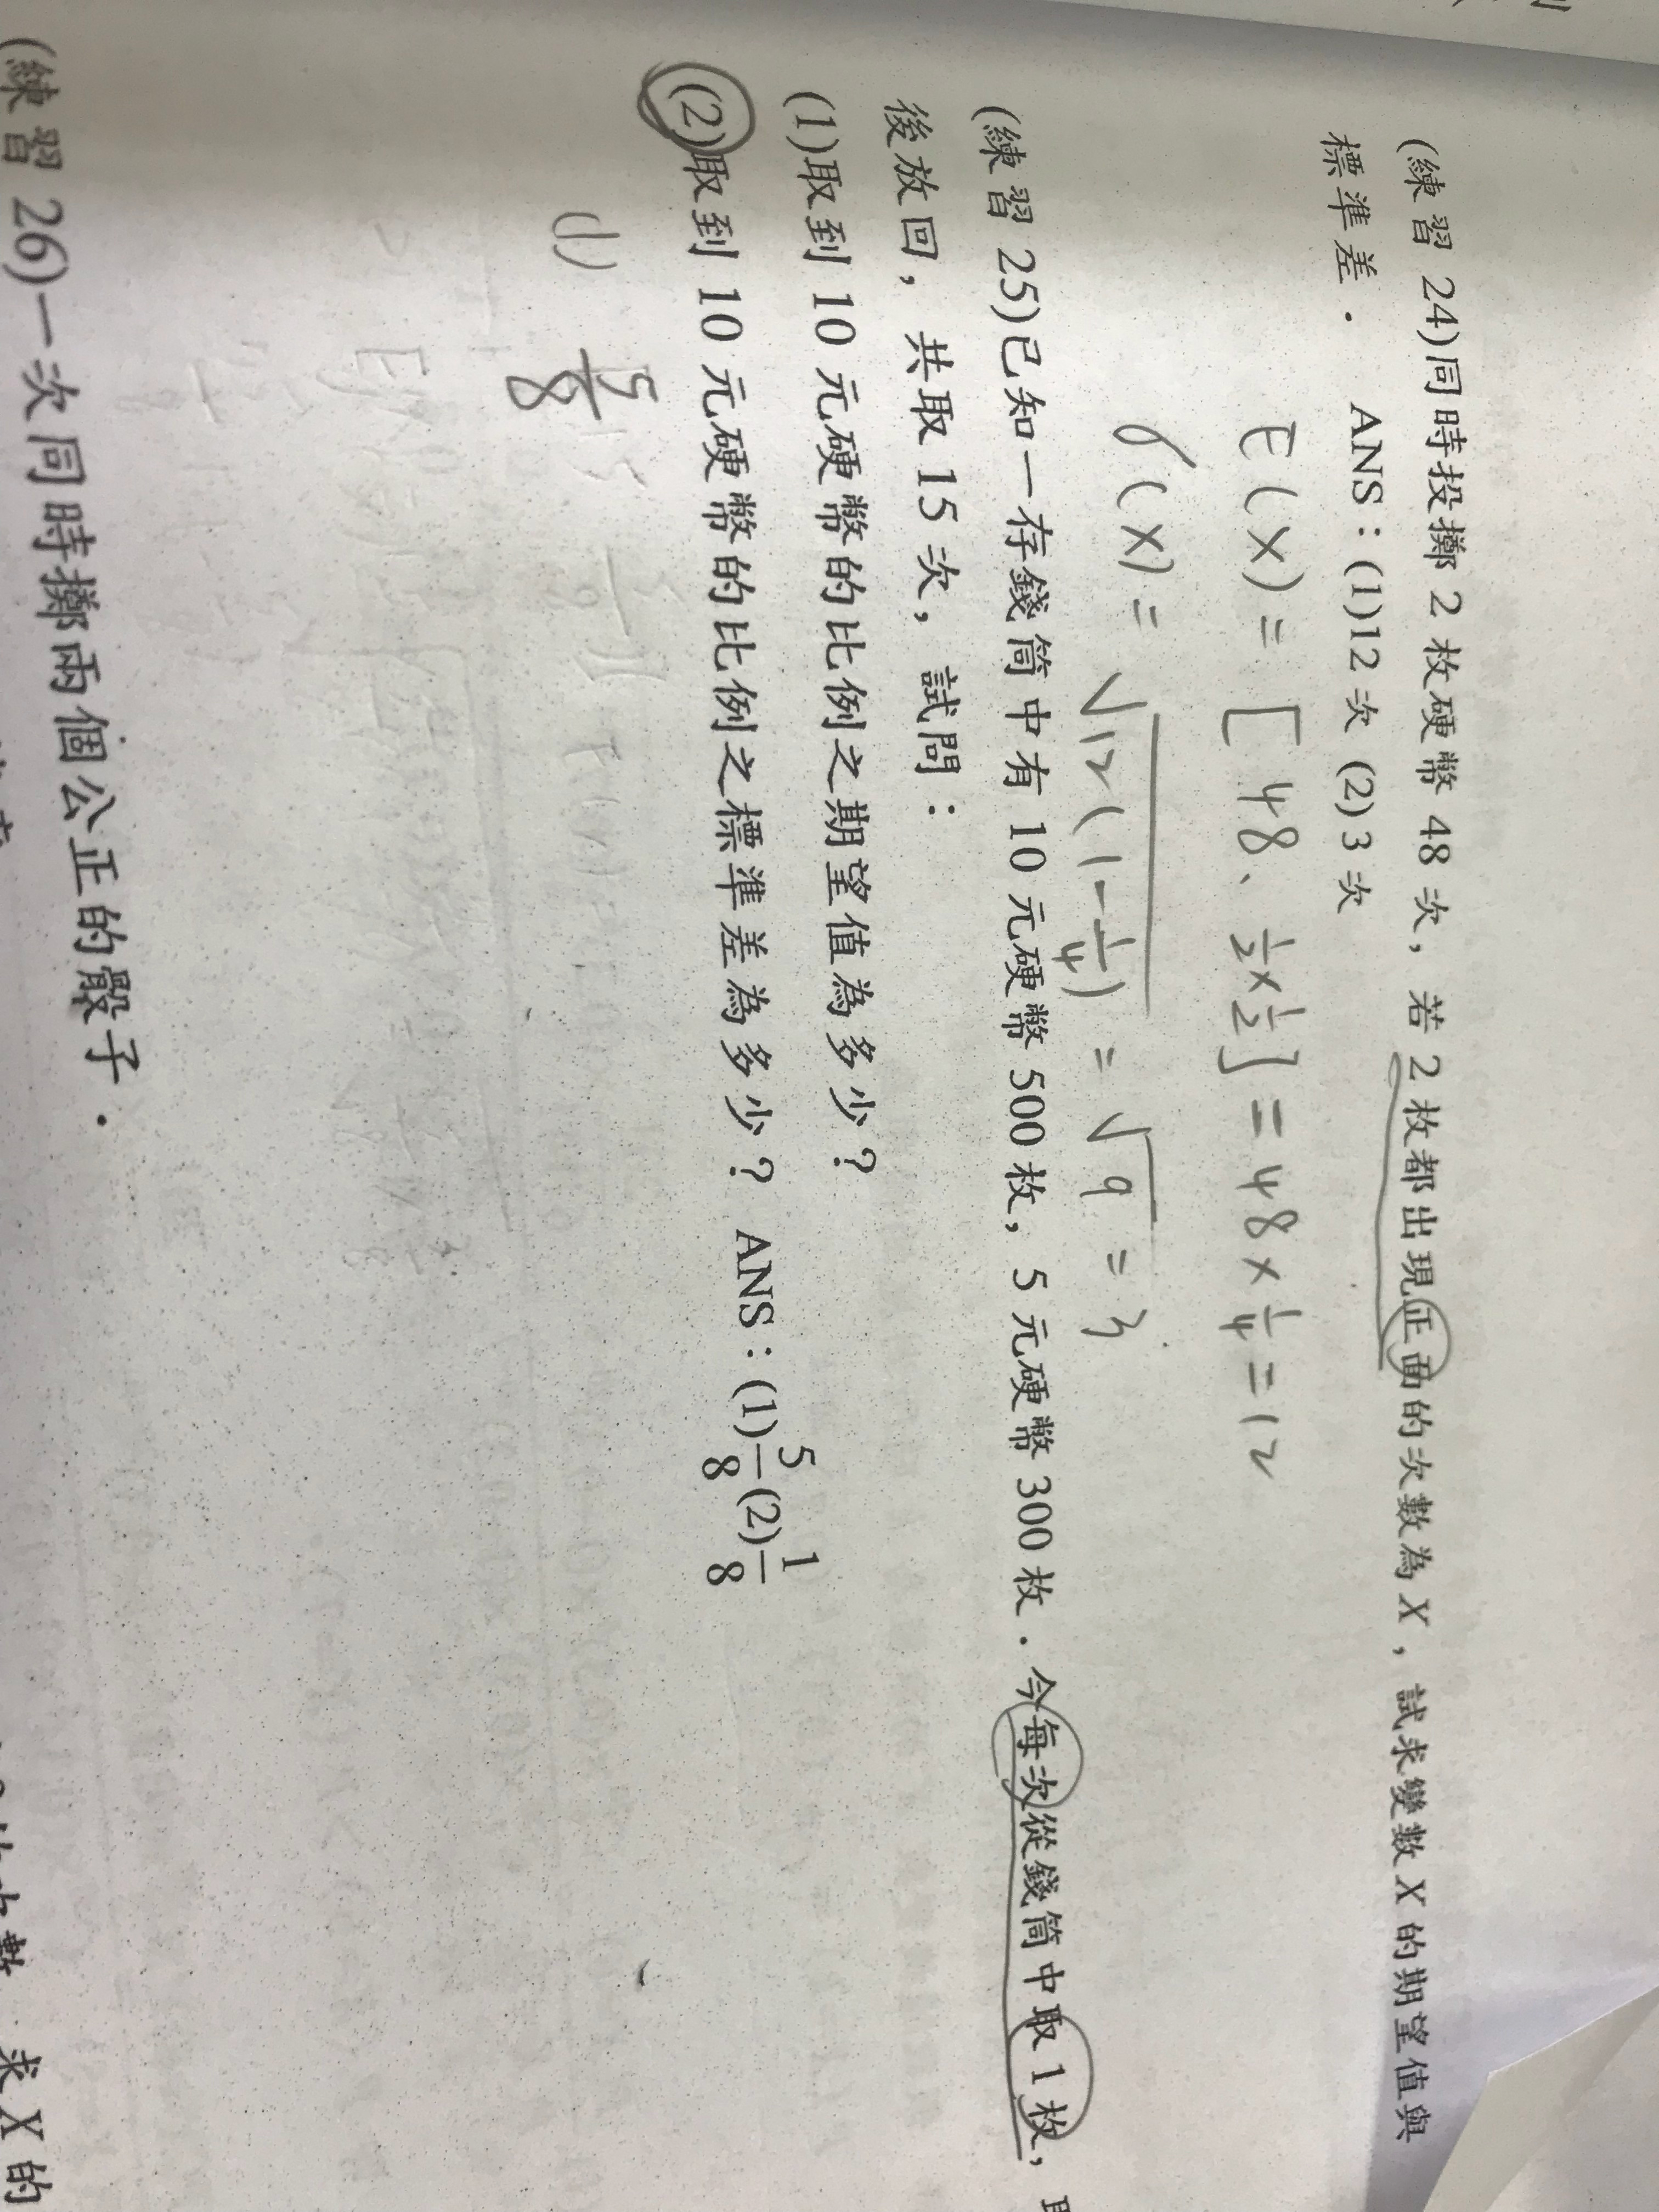 (練習 24)同時投擲 2 枚硬幣 48 次，若 2 枚都出現正面的次數為 X，試求變數 X 的期望值與
標準差． ANS：(1)12 次 (2)3 次
E(X) = [48、1/2×1/2] = 48×1/4 = 12
σ(X) = √12(1-1/4) = √9 = 3
(練習 25)已知一存錢筒中有 10 元硬幣 500 枚，5 元硬幣 300 枚．今每次從錢筒中取 1 枚，
後放回，共取 15 次，試問：
(1)取到 10 元硬幣的比例之期望值為多少？
(2)取到 10 元硬幣的比例之標準差為多少？ ANS：(1)5/8 (2)1/8
(1) 5/8
(練習 26)一次同時擲兩個公正的骰子．
求 X 的